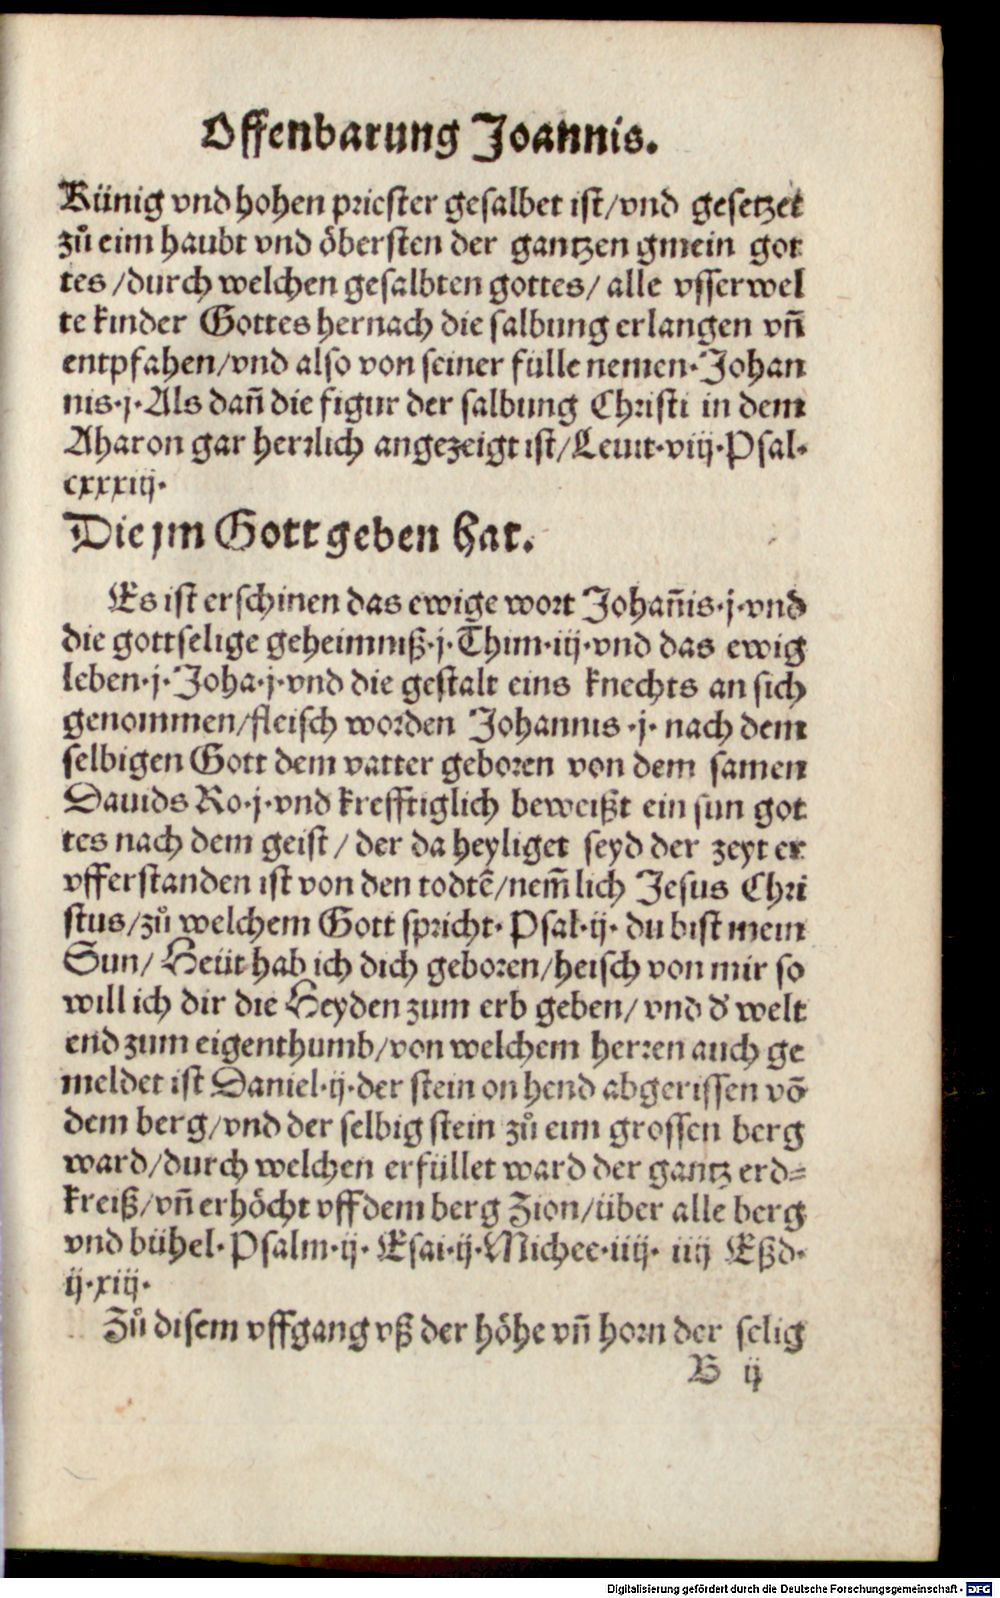 Offenbarung Joannis.
Künig vnd hohen priester gesalbet ist/vnd gesetzet
zů eim haubt vnd öbersten der gantzen gmein got
tes/durch welchen gesalbten gottes/ alle vsserwel
te kinder Gottes hernach die salbung erlangen vñ
entpfahen/vnd also von seiner fülle nemen. Johan
nis.j. Als dañ die figur der salbung Christi in dem
Aharon gar herrlich angezeigt ist/Leuit.viij.Psal.
cxxxiij.
Die jm Gott geben hat.
Es ist erschinen das ewige wort Johañis.j.vnd
die gottselige geheimniß.j.Thim.iij.vnd das ewig
leben.j.Joha.j.vnd die gestalt eins knechts an sich
genommen/fleisch worden Johannis.j. nach dem
selbigen Gott dem vatter geboren von dem samen
Dauids Ro.j.vnd krefftiglich beweißt ein sun got
tes nach dem geist/ der da heyliget seyd der zeyt er
vfferstanden ist von den todtē/nem̃lich Jesus Chri
stus/zů welchem Gott spricht. Psal.ij. du bist mein
Sun/ Heüt hab ich dich geboren/heisch von mir so
will ich dir die Heyden zum erb geben/ vnd d' welt
end zum eigenthumb/von welchem herren auch ge
meldet ist Daniel.ij.der stein on hend abgerissen võ
dem berg/vnd der selbig stein zů eim grossen berg
ward/durch welchen erfüllet ward der gantz erd=
kreiß/vñ erhöcht vff dem berg Zion/über alle berg
vnd bühel. Psalm.ij. Esai.ij.Michee.iiij. iiij Eßd.
ij.xiij.
Zů disem vffgang vß der höhe vñ horn der selig
B ij
Digitalisierung gefördert durch die Deutsche Forschungsgemeinschaft - DFG